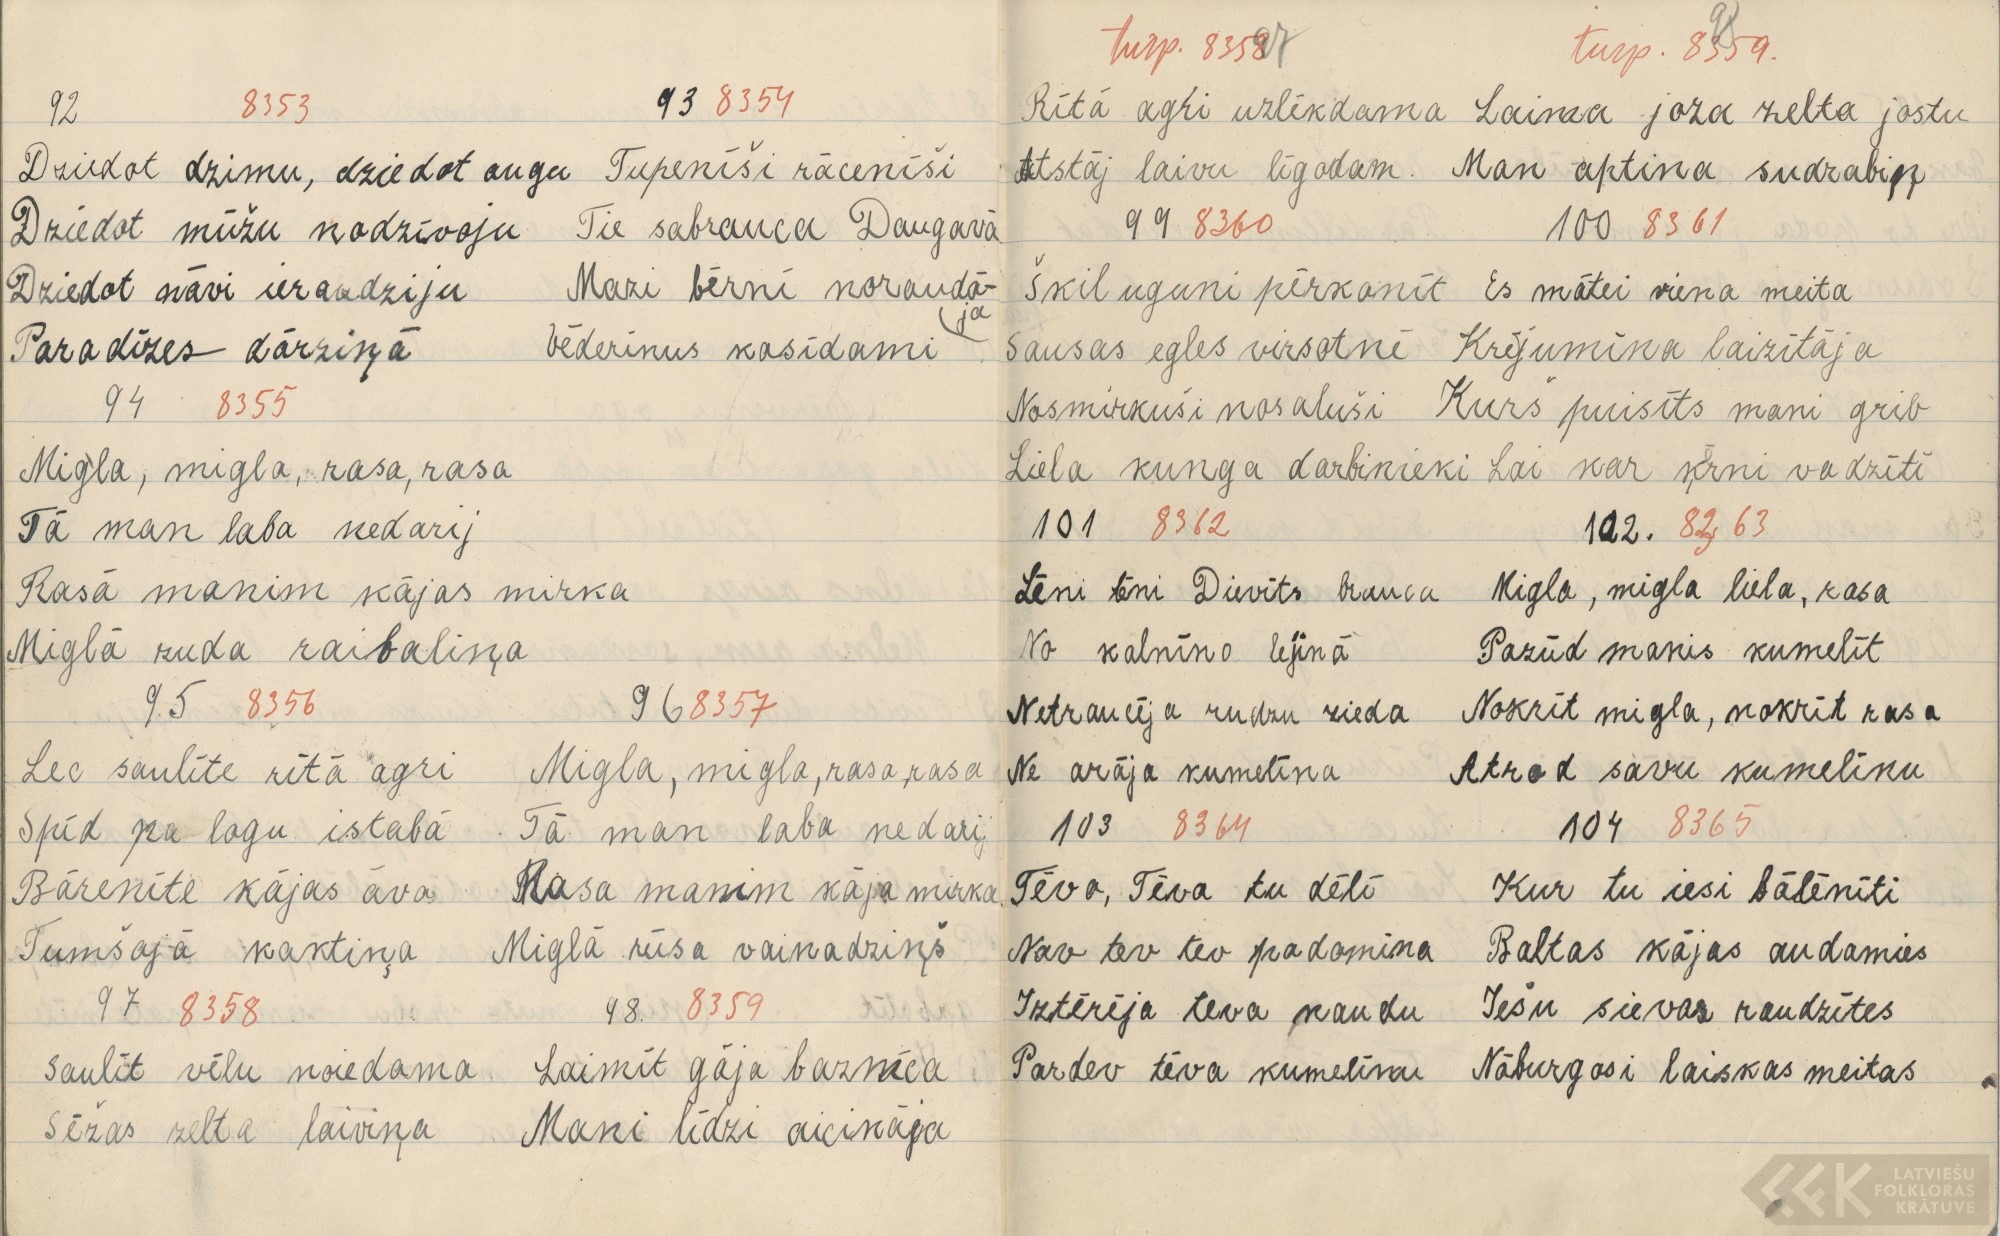 92 8353
Dziedot dzimu, dziedot augu
Dziedot mūžu nodzīvoju
Dziedot nāvi ieraudziju
Paradīzes dārziņā
93 8354
Tupenīši rācenīši
Tie sabrauca Daugavā
Mazi bērni noraudā-
ja
Vēderinus kasīdami
94 8355
Migla, migla, rasa, rasa
Tā man laba nedarij
Rasā manim kājas mirka
Miglā zuda raibaliņa
95 8356
Lec saulīte rītā agri
Spīd pa logu istabā
Bārenīte kājas āva
Tumšajā kaktiņa
96 8357
Migla, migla, rasa, rasa
Tā man laba nedarij
Rasa manim kāja mirka
Miglā rūsa vainadziņš
97 8358
Saulīt vēlu noiedama
Sēžas zelta laiviņa
98. 8359
Laimīt gāja baznīca
Mani līdzi aicināja
turp. 8358 97
Rītā agri uzlēkdama
Atstāj laivu līgodam.
turp. 8359. 98
Laima joza zelta jostu
Man aptina sudrabiņ
99 8360
Škil uguni pērkonīt
Sausas egles virsotnē
Nosmirkuši nosaluši
Liela kunga darbinieki
100 8361
Es mātei viena meita
Krējumīna laizītāja
Kurš puisīts mani grib
Lai kar ķērni vadzīti
101 8362
Lēni lēni Dievīts brauca
No kalnīno lejinā
Netraucēja rudzu zieda
Ne arāja kumelīna
102. 8363
Migla, migla liela, rasa
Pazūd manis kumelīt
Nokrīt migla, nokrīt rasa
Atrod savu kumelīnu
103 8364
Tēva, Tēva tu dēli
Nav tev tev padomina
Iztērēja tēva naudu
Pardev tēva kumelīnu
104 8365
Kur tu iesi bālēnīti
Baltas kājas audamies
Iešu sievas raudzītes
Nāburgosi laiskas meitas
LATVIEŠU
FOLKLORAS
KRĀTUVE